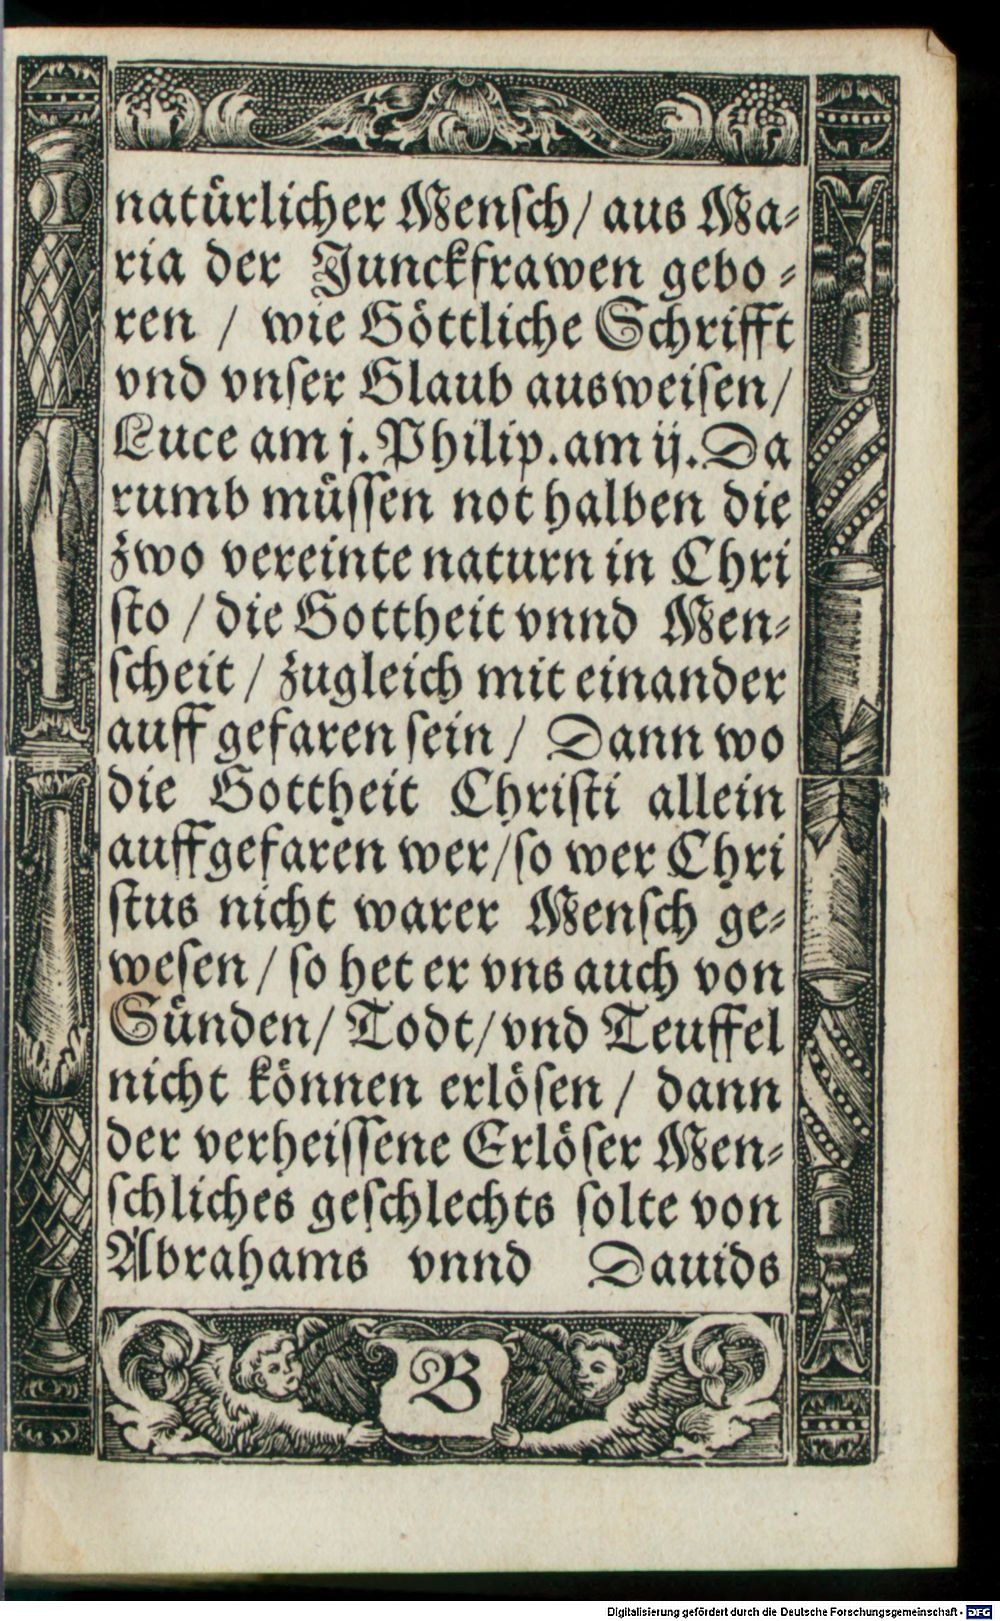 natürlicher Menſch/ aus Ma⸗
ria der Junckfrawen gebo⸗
ren / wie Göttliche Schrifft
vnd vnſer Glaub ausweiſen/
Luce am j. Philip. am ij. Da
rumb müſſen not halben die
zwo vereinte naturn in Chri
ſto / die Gottheit vnnd Men⸗
ſcheit / zugleich mit einander
auff gefaren ſein / Dann wo
die Gottheit Chriſti allein
auffgefaren wer/ſo wer Chri
ſtus nicht warer Menſch ge⸗
weſen / ſo het er vns auch von
Sünden/ Todt/ vnd Teuffel
nicht können erlöſen / dann
der verheiſſene Erlöſer Men⸗
ſchliches geſchlechts ſolte von
Abrahams vnnd Dauids
B
Digitalisierung gefördert durch die Deutsche Forschungsgemeinschaft - DFG